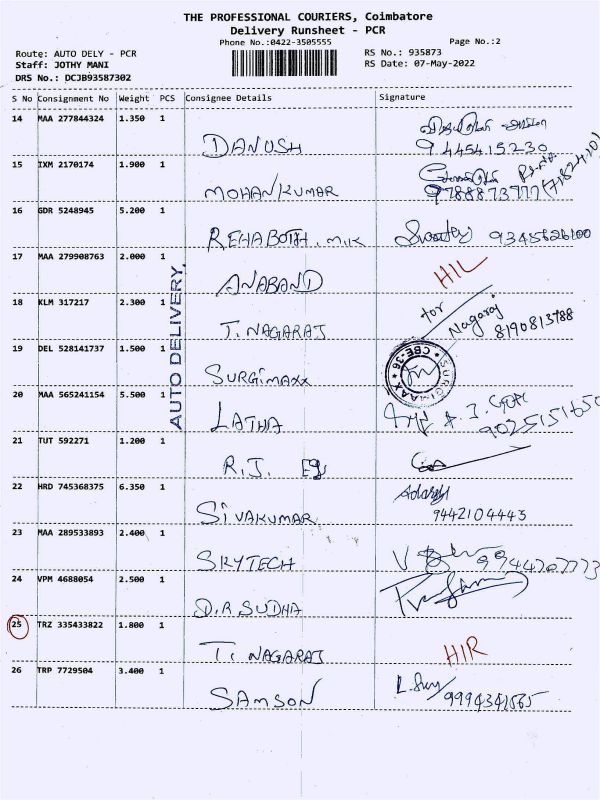 THE PROFESSIONAL COURIERS, Coimbatore
Delivery Runsheet - PCR
Phone No.:0422-3505555
Page No.:2
Route: AUTO DELY - PCR
RS No.: 935873
Staff: JOTHY MANI
RS Date: 07-May-2022
DRS No.: DCJB93587302
S No Consignment No Weight PCS Consignee Details Signature
14 MAA 277844324 1.350 1
DANUSH 9445415230
15 IXM 2170174 1.900 1
MOHANKUMAR 9788873777
16 GDR 5248945 5.200 1
REHABOTH. MIK 9345626100
17 MAA 279908763 2.000 1
ANABAND HIL
18 KLM 317217 2.300 1
T. NAGARAJ for Nagaraj 8190813788
19 DEL 528141737 1.500 1
SURGIMAXX SURGIMAAX CBE-36
20 MAA 565241154 5.500 1
LATHA 9025151650
21 TUT 592271 1.200 1
R.J.
22 HRD 745368375 6.350 1
SIVAKUMAR 9442104445
23 MAA 289533893 2.400 1
SKYTECH 9944707773
24 VPM 4688054 2.500 1
D.R SUDHA
25 TRZ 335433822 1.800 1
T. NAGARAJ HIR
26 TRP 7729504 3.400 1
SAMSON 9994341565
AUTO DELIVERY.